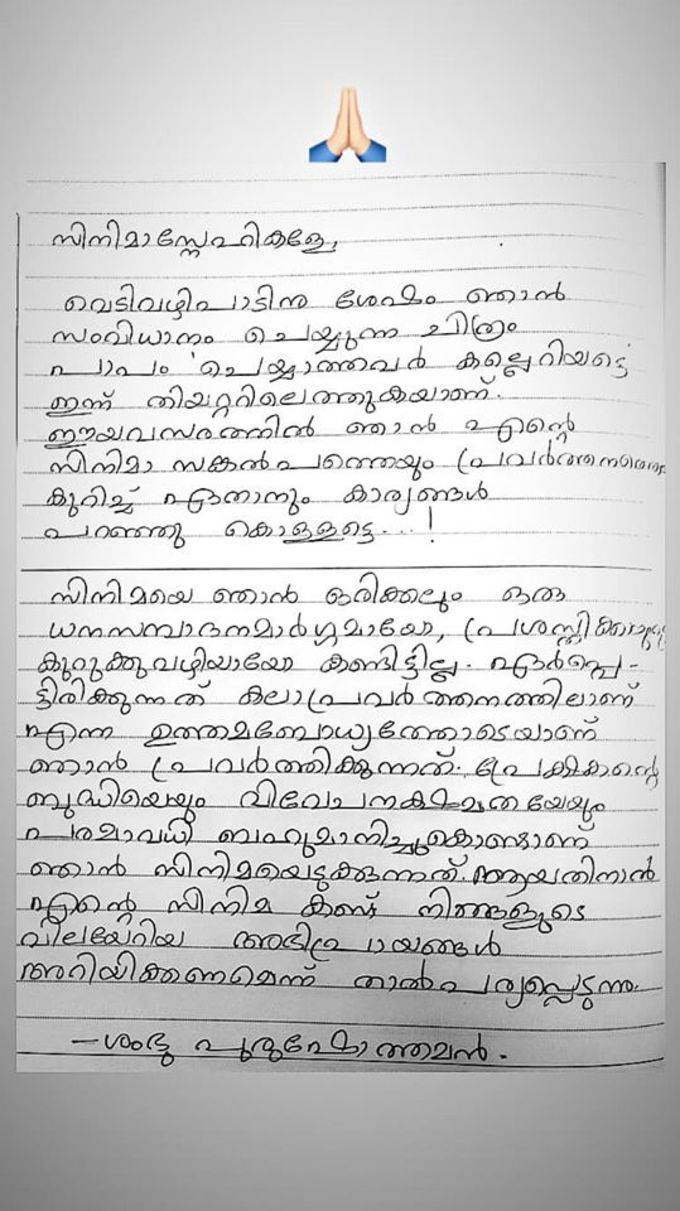 സിനിമാസ്നേഹികളേ,
വെടിവഴിപാടിനു ശേഷം ഞാൻ
സംവിധാനം ചെയ്യുന്ന ചിത്രം
പാപം ചെയ്യാത്തവർ കല്ലെറിയട്ടെ
ഇന്ന് തിയറ്ററിലെത്തുകയാണ്.
ഈയവസരത്തിൽ ഞാൻ എന്റെ
സിനിമാ സങ്കൽപത്തെയും പ്രവർത്തനത്തെ
കുറിച്ച് ഏതാനും കാര്യങ്ങൾ
പറഞ്ഞു കൊള്ളട്ടെ...!
സിനിമയെ ഞാൻ ഒരിക്കലും ഒരു
ധനസമ്പാദനമാർഗ്ഗമായോ,
കുറുക്കുവഴിയായോ കണ്ടിട്ടില്ല. ഏർപ്പെ-
ട്ടിരിക്കുന്നത് കലാപ്രവർത്തനത്തിലാണ്
എന്ന ഉത്തമബോധ്യത്തോടെയാണ്
ഞാൻ പ്രവർത്തിക്കുന്നത്. പ്രേക്ഷകന്റെ
ബുദ്ധിയെയും വിവേചനക്ഷമതയേയും
പരമാവധി ബഹുമാനിച്ചുകൊണ്ടാണ്
ഞാൻ സിനിമയെടുക്കുന്നത്. ആയതിനാൽ
എന്റെ സിനിമ കണ്ട് നിങ്ങളുടെ
വിലയേറിയ അഭിപ്രായങ്ങൾ
അറിയിക്കണമെന്ന് താൽപര്യപ്പെടുന്നു.
-ശംഭു പുരുഷോത്തമൻ.